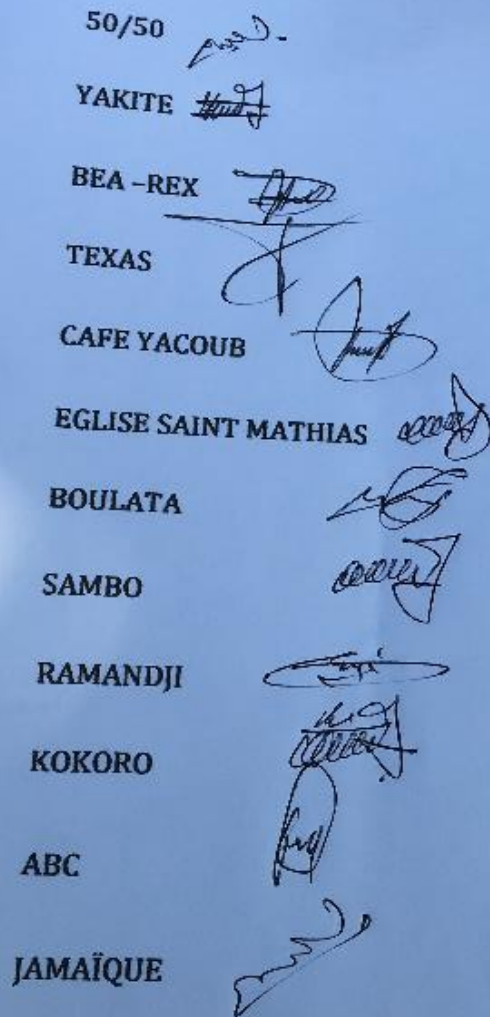 50/50
YAKITE
BEA –REX
TEXAS
CAFE YACOUB
EGLISE SAINT MATHIAS
BOULATA
SAMBO
RAMANDJI
KOKORO
ABC
JAMAÏQUE